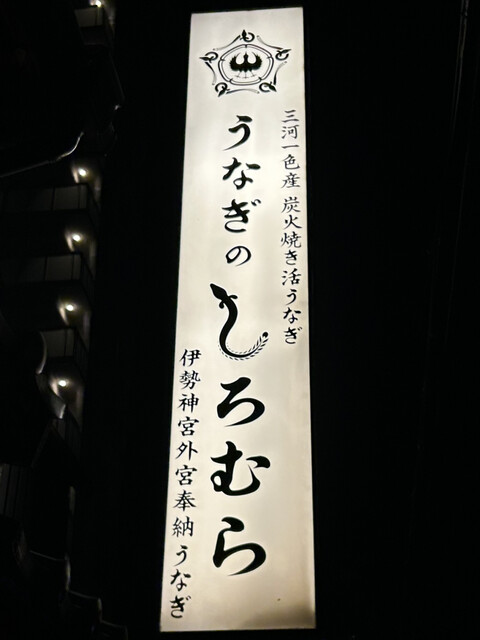 三河一色産 炭火焼き活うなぎ
うなぎの
しろむら
伊勢神宮外宮奉納うなぎ